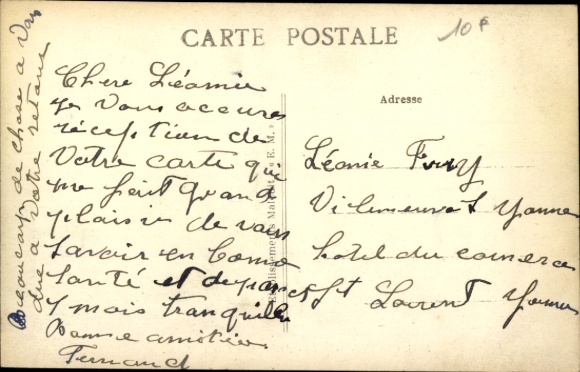 CARTE POSTALE
10 F
Adresse
Chere Léonie
je vous accures
réception de
votre carte qui
me fait grand
plaisir de vous
savoir en bonne
santé et
mois tranquille
Bonne amitiés
Fernand
Beaucoup de chose a
due a votre retour
Léonie
Yonne
hotel du comerce
St Laurent Yonne
Etablissements E. M.